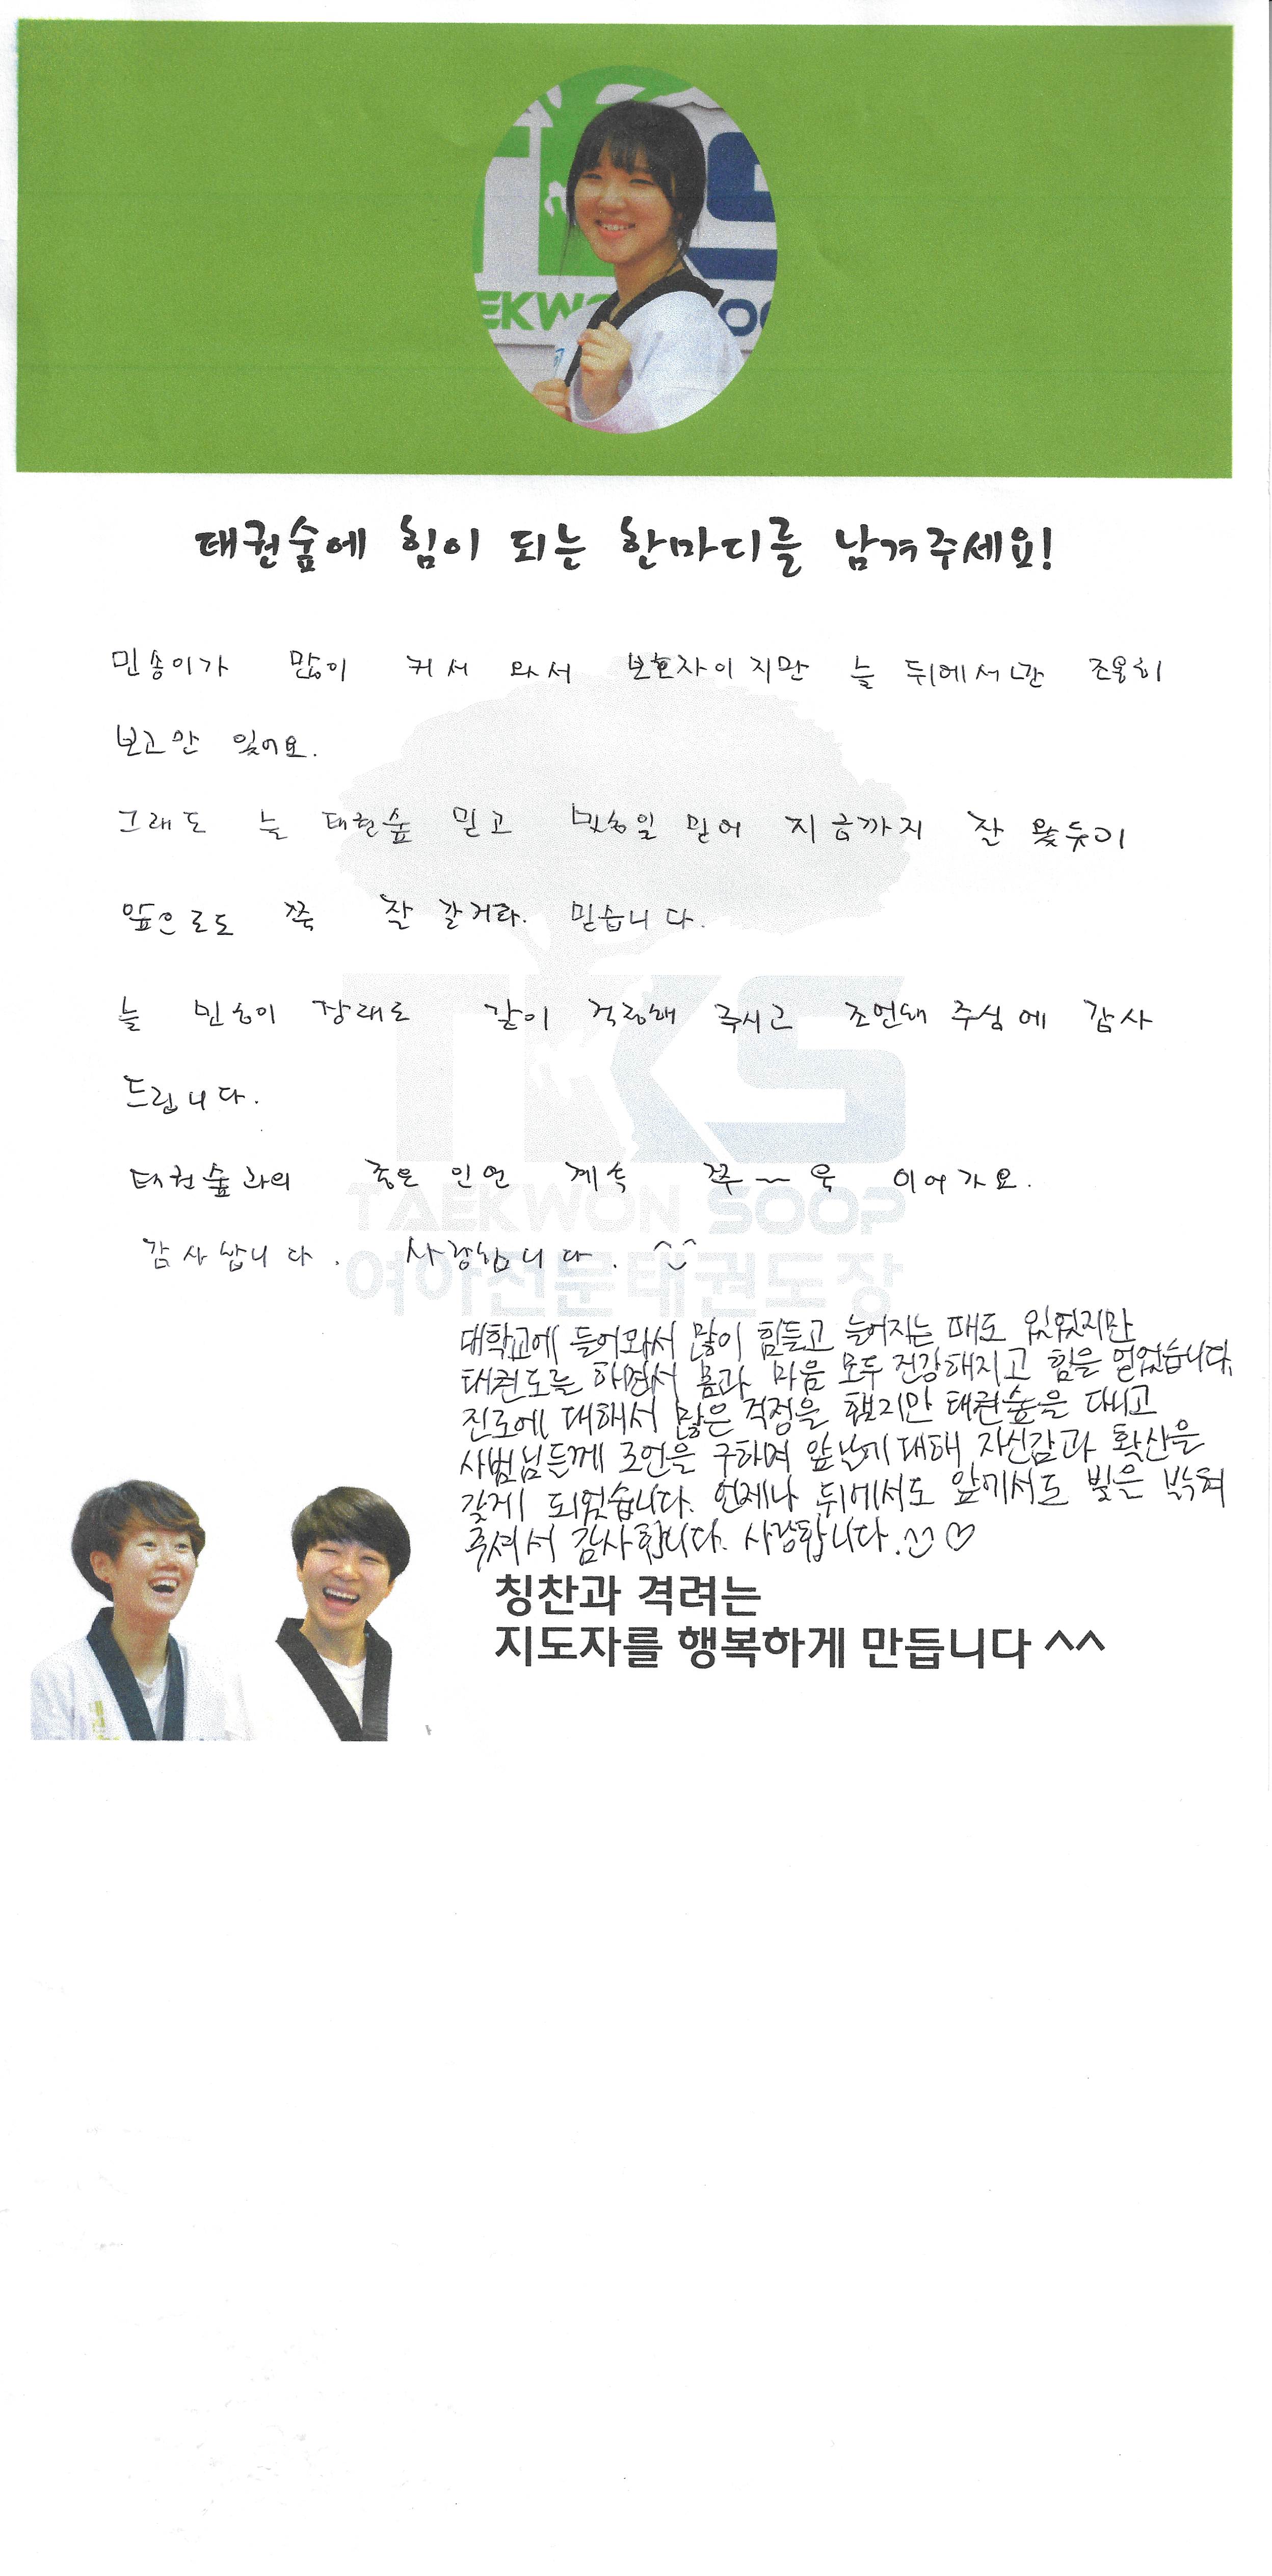 EKWO
OO
태권숲에 힘이 되는 한마디를 남겨주세요!
민송이가 많이 커서 와서 보호자이지만 늘 뒤에서만 조용히
보고만 있어요.
그래도 늘 태권숲 믿고 민송일 믿어 지금까지 잘 왔듯이
앞으로도 쭉 잘 갈거라 믿습니다.
늘 민송이 장래도 같이 걱정해 주시고 조언해 주심에 감사
드립니다.
태권숲과의 좋은 인연 계속 쭈~욱 이어가요.
감사합니다. 사랑합니다. ^^
TKS
TAEKWON SOOP
여아전문태권도장
대학교에 들어와서 많이 힘들고 늘어지는 때도 있었지만
태권도를 하면서 몸과 마음 모두 건강해지고 힘을 얻었습니다.
진로에 대해서 많은 걱정을 했지만 태권숲을 다니고
사범님들께 조언을 구하며 앞날에 대해 자신감과 확신을
갖게 되었습니다. 언제나 뒤에서도 앞에서도 빛을 밝혀
주셔서 감사합니다. 사랑합니다. ^^ ♡
칭찬과 격려는
지도자를 행복하게 만듭니다 ^^